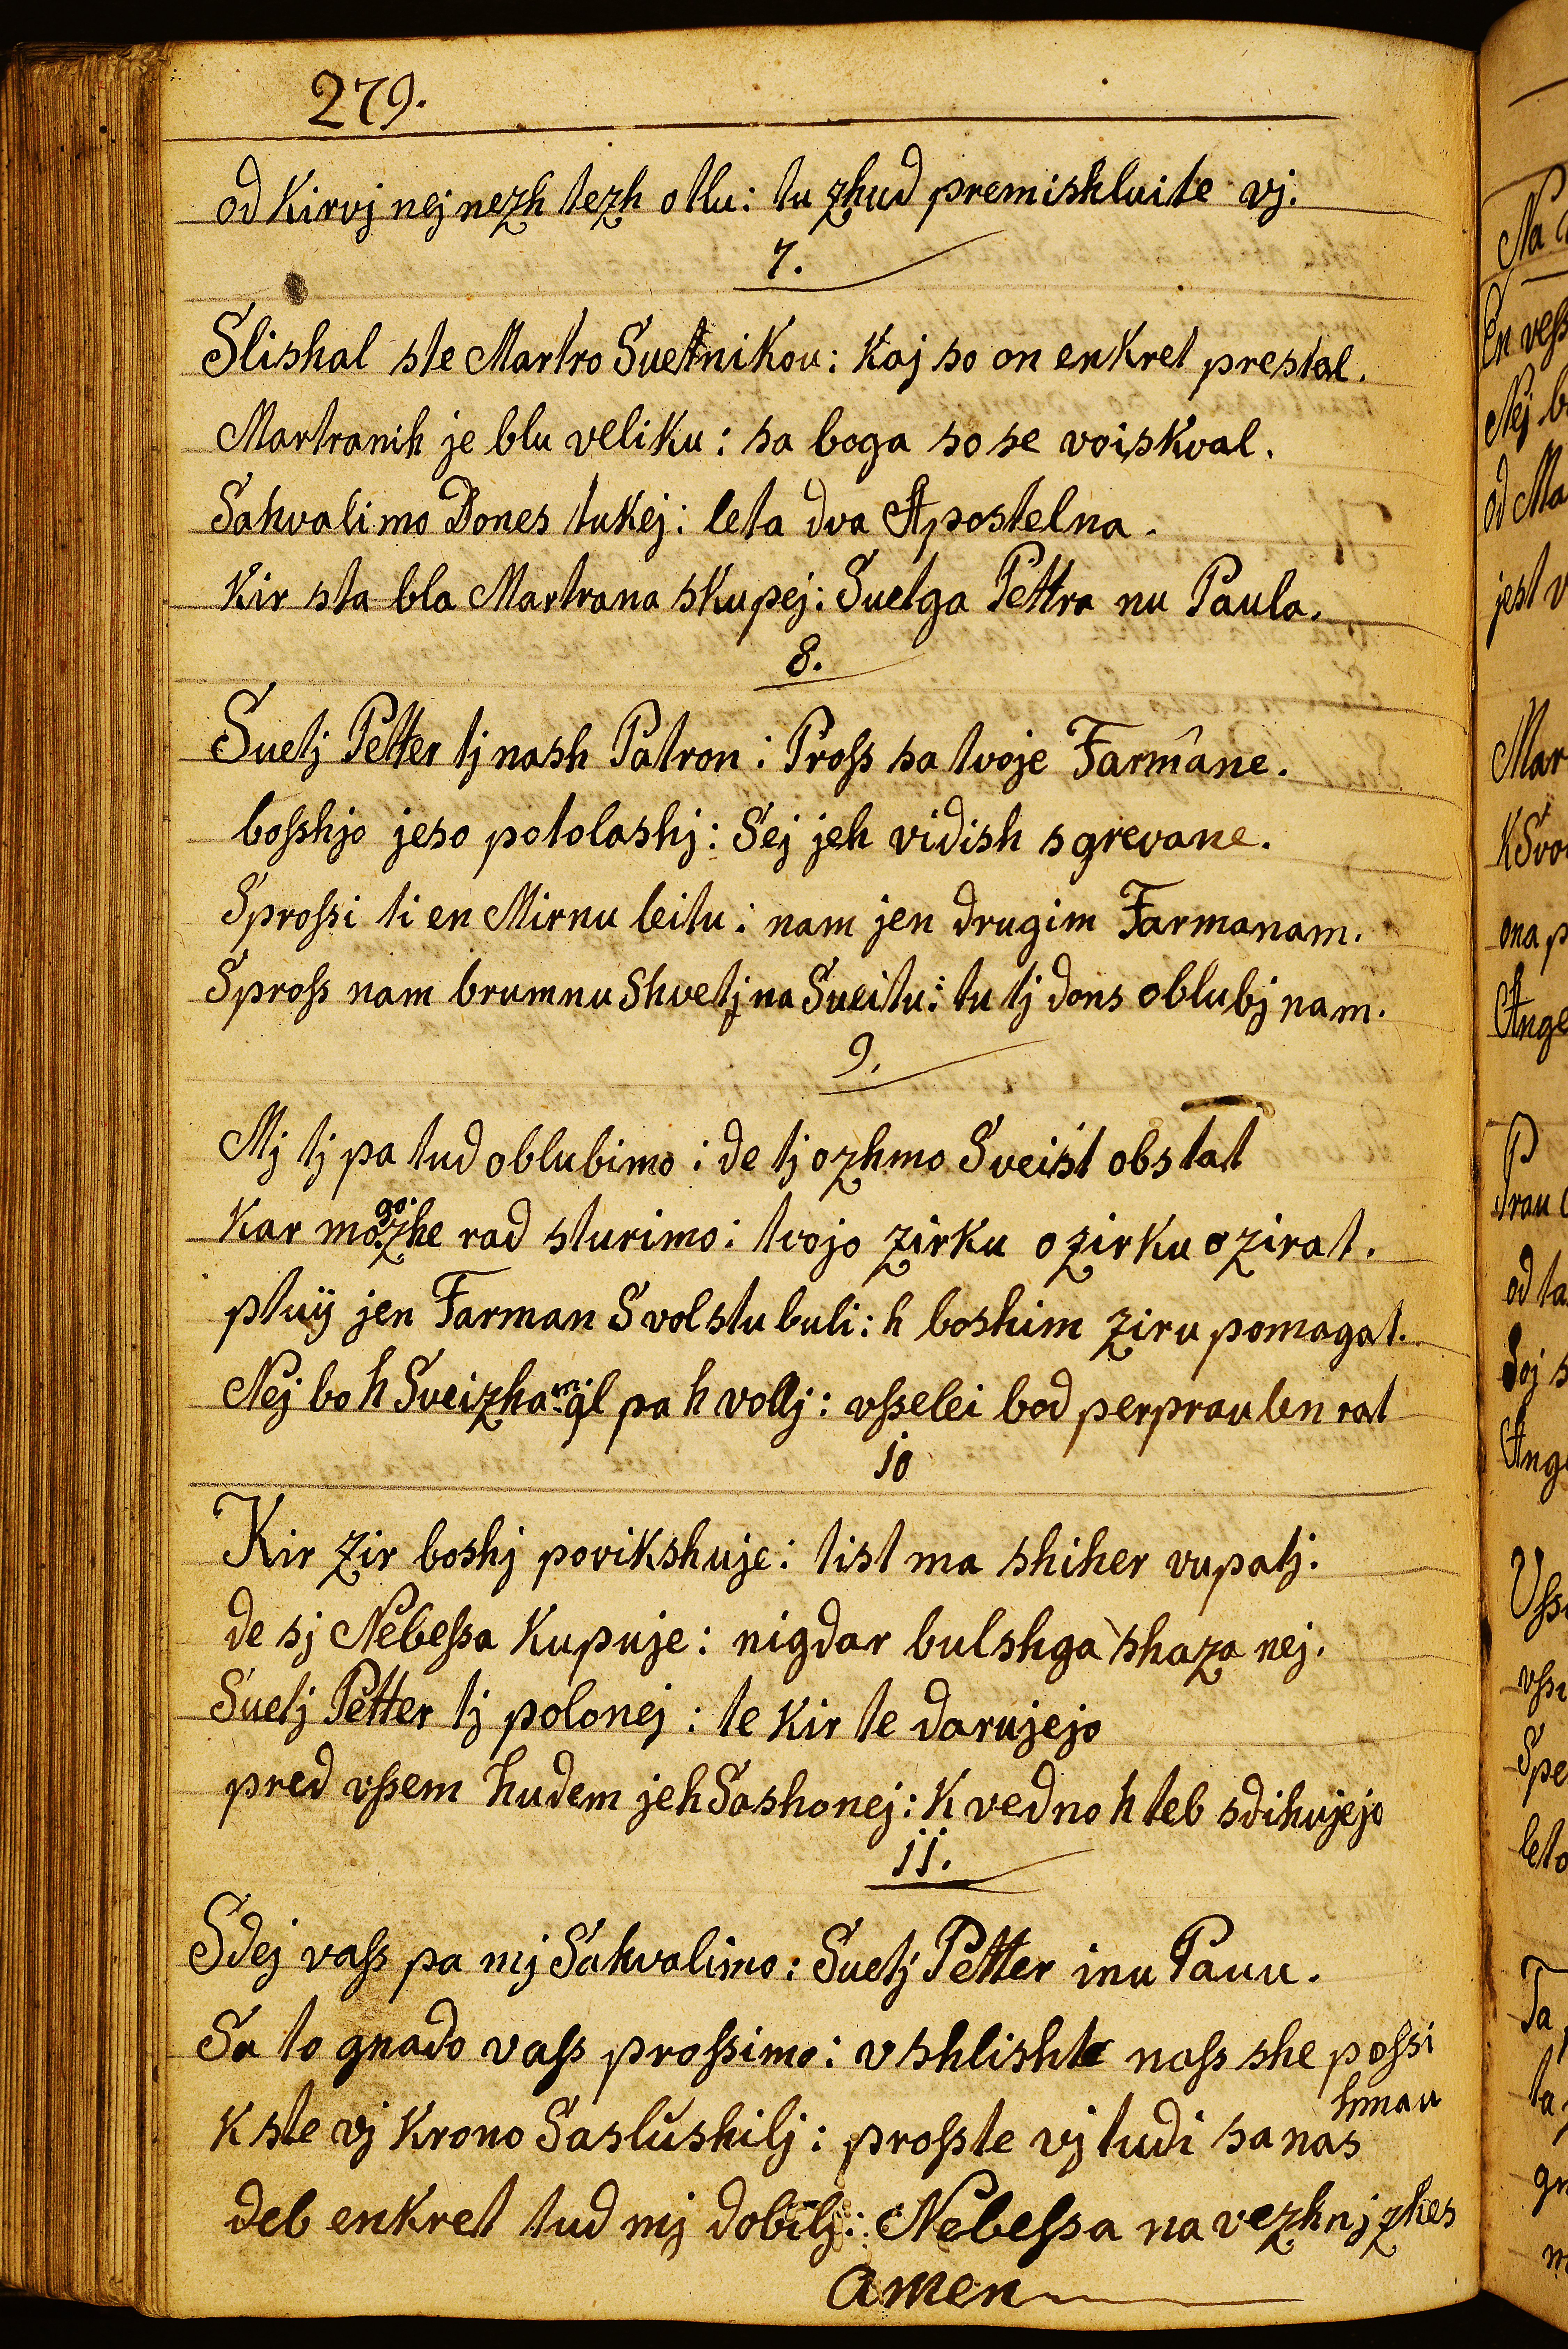 279.
od Kirvj nej nezh tezh otlu: tu zhud premishluite vj.
7.
Slishal ste Martro Suetnikou: Kaj so on enkret prestal.
Martranih je blu veliku: sa boga so se voiskval.
Sahvalimo Dones tukej: leta dva Apostelna.
Kir sta bla Martrana skupej: Suetga Pettra nu Paula.
8.
Suetj Petter tj nash Patron: Proſs sa tvoje Farmâne.
boſshjo jeso potolashj: Sej jeh vidish sgrevane.
Sproſsi ti en Mirnu leitu: nam jen drugim Farmanam.
Sproſs nam brumnu Shvetj na Sueitu: tu tj dons oblubj nam.
9.
Mj tj pa tud oblubimo: de tj ozhmo Sveist obstat
go.
Kar mo.zhe rad sturimo: tvojo zirku o zirku o zirat.
ptuÿ jen Farman Svolstu buli: h boshim ziru pomagat.
Nej bo h Sveizham: ql pa h vollj: vſselei bod perpraulen rat
10
Kir zir boshj povikshuje: tist ma shiher vupatj.
de sj Nebeſsa Kupuje: nigdar bulshga shaza nej.
Suetj Petter tj polonej: te Kir te darujejo
pred vſsem hudem jeh Sashonej: K vedno h teb sdihujejo
11.
Sdej vaſs pa mj Sahvalimo: Suetj Petter inu Pauu.
Sa to gnado vaſs proſsimo: vshlishte naſs she poſsi
hmau
K ste vj Krono Saslushilj: proſste vj tudi sa nas
deb enkret tud mj dobilj: Nebeſsa na vezhnj zhes
amen